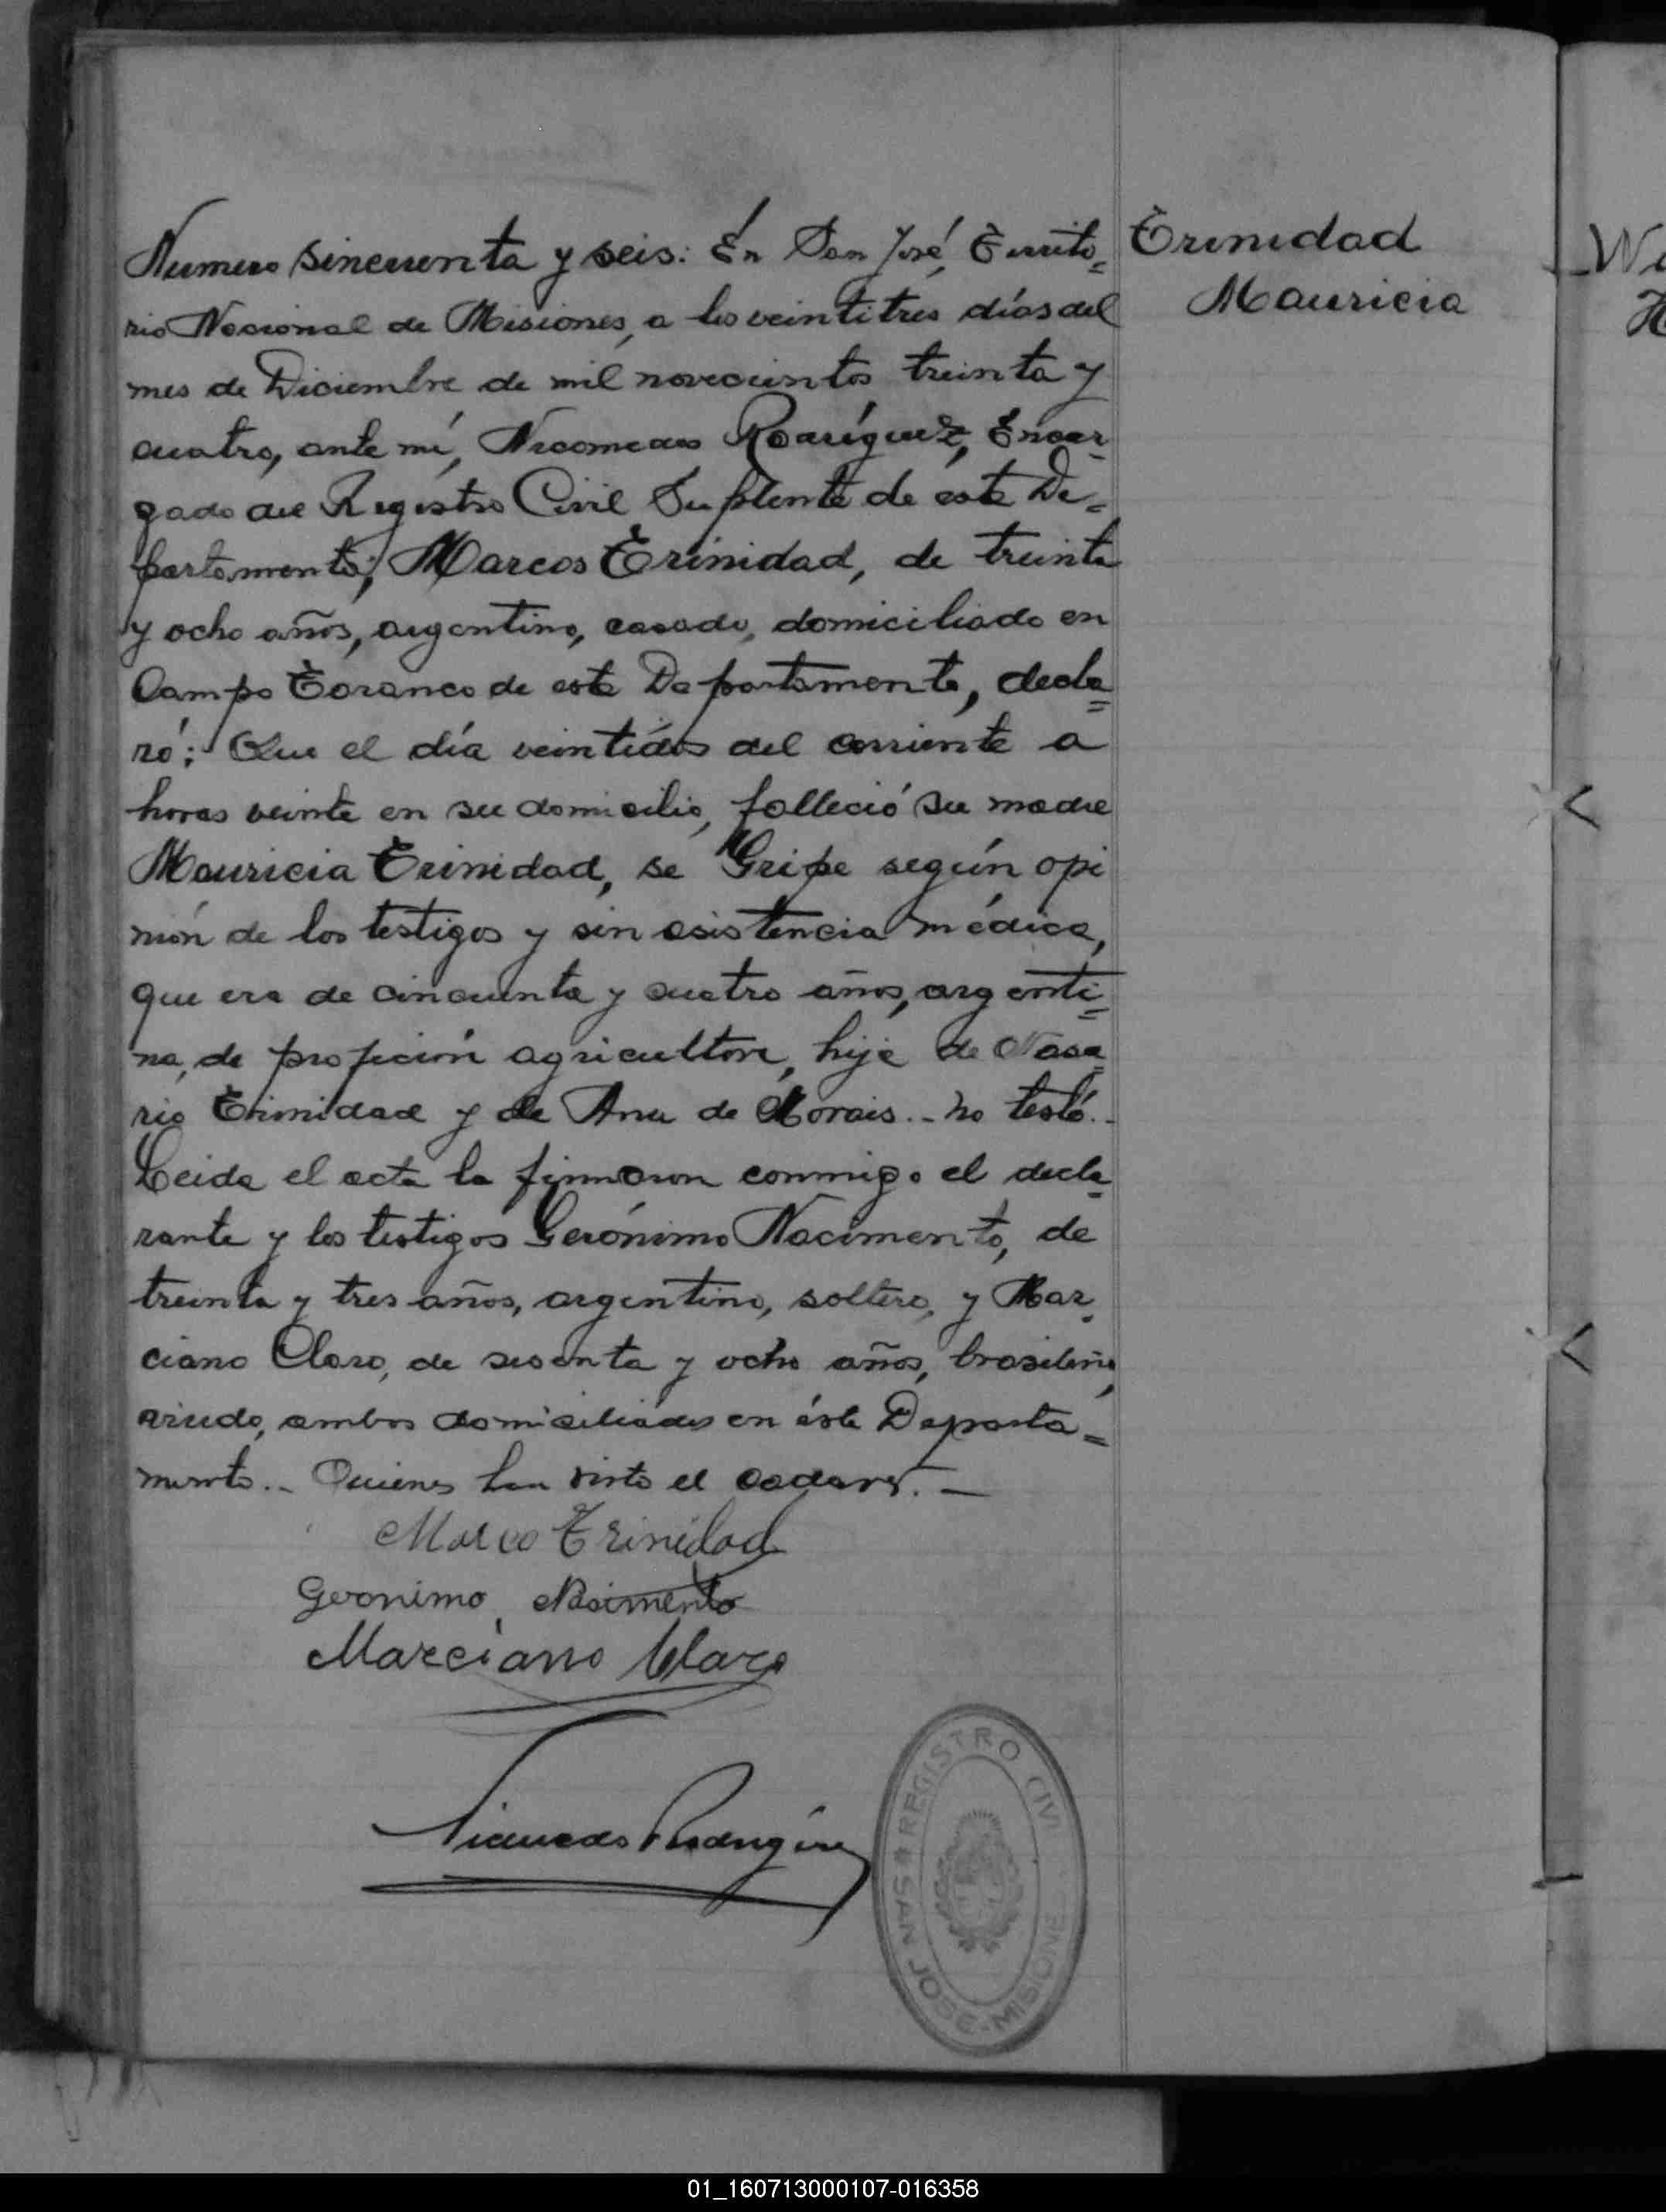 Numero sincuenta y seis: En San José, Territo=
rio Nacional de Misiones, a los veintitres días del
mes de Diciembre de mil novecientos treinta y
cuatro, ante mí, Nicomedes Rodríguez, Encar-
gado del Registro Civil Suplente de este De=
partamento; Marcos Trinidad, de treinta
y ocho años, argentino, casado, domiciliado en
Campo de este Departamento, decla=
ró: Que el día veintidós del corriente a
horas veinte en su domicilio, falleció su madre
Mauricia Trinidad, se Gripe según opi
nión de los testigos y sin asistencia médica,
que era de cincuenta y cuatro años, argenti=
na, de profeción agricultora, hija de Nasa=
rio Trinidad y de Ana de Morais.- no testó.-
Leida el acta la firmaron conmigo el decla-
rante y los testigos Gerónimo Nacimento, de
treinta y tres años, argentino, soltero, y Mar-
ciano Claro, de sesenta y ocho años, brasileño,
viudo, ambos domiciliados en éste Departa=
mento.- Quienes han visto el cadaver.-
Marco Trinidad
Geronimo Nasimento
Marciano Claro
Nicomedes Rodríguez
REGISTRO CIVIL
SAN JOSE-MISIONES
Trinidad
Mauricia
01_160713000107-016358